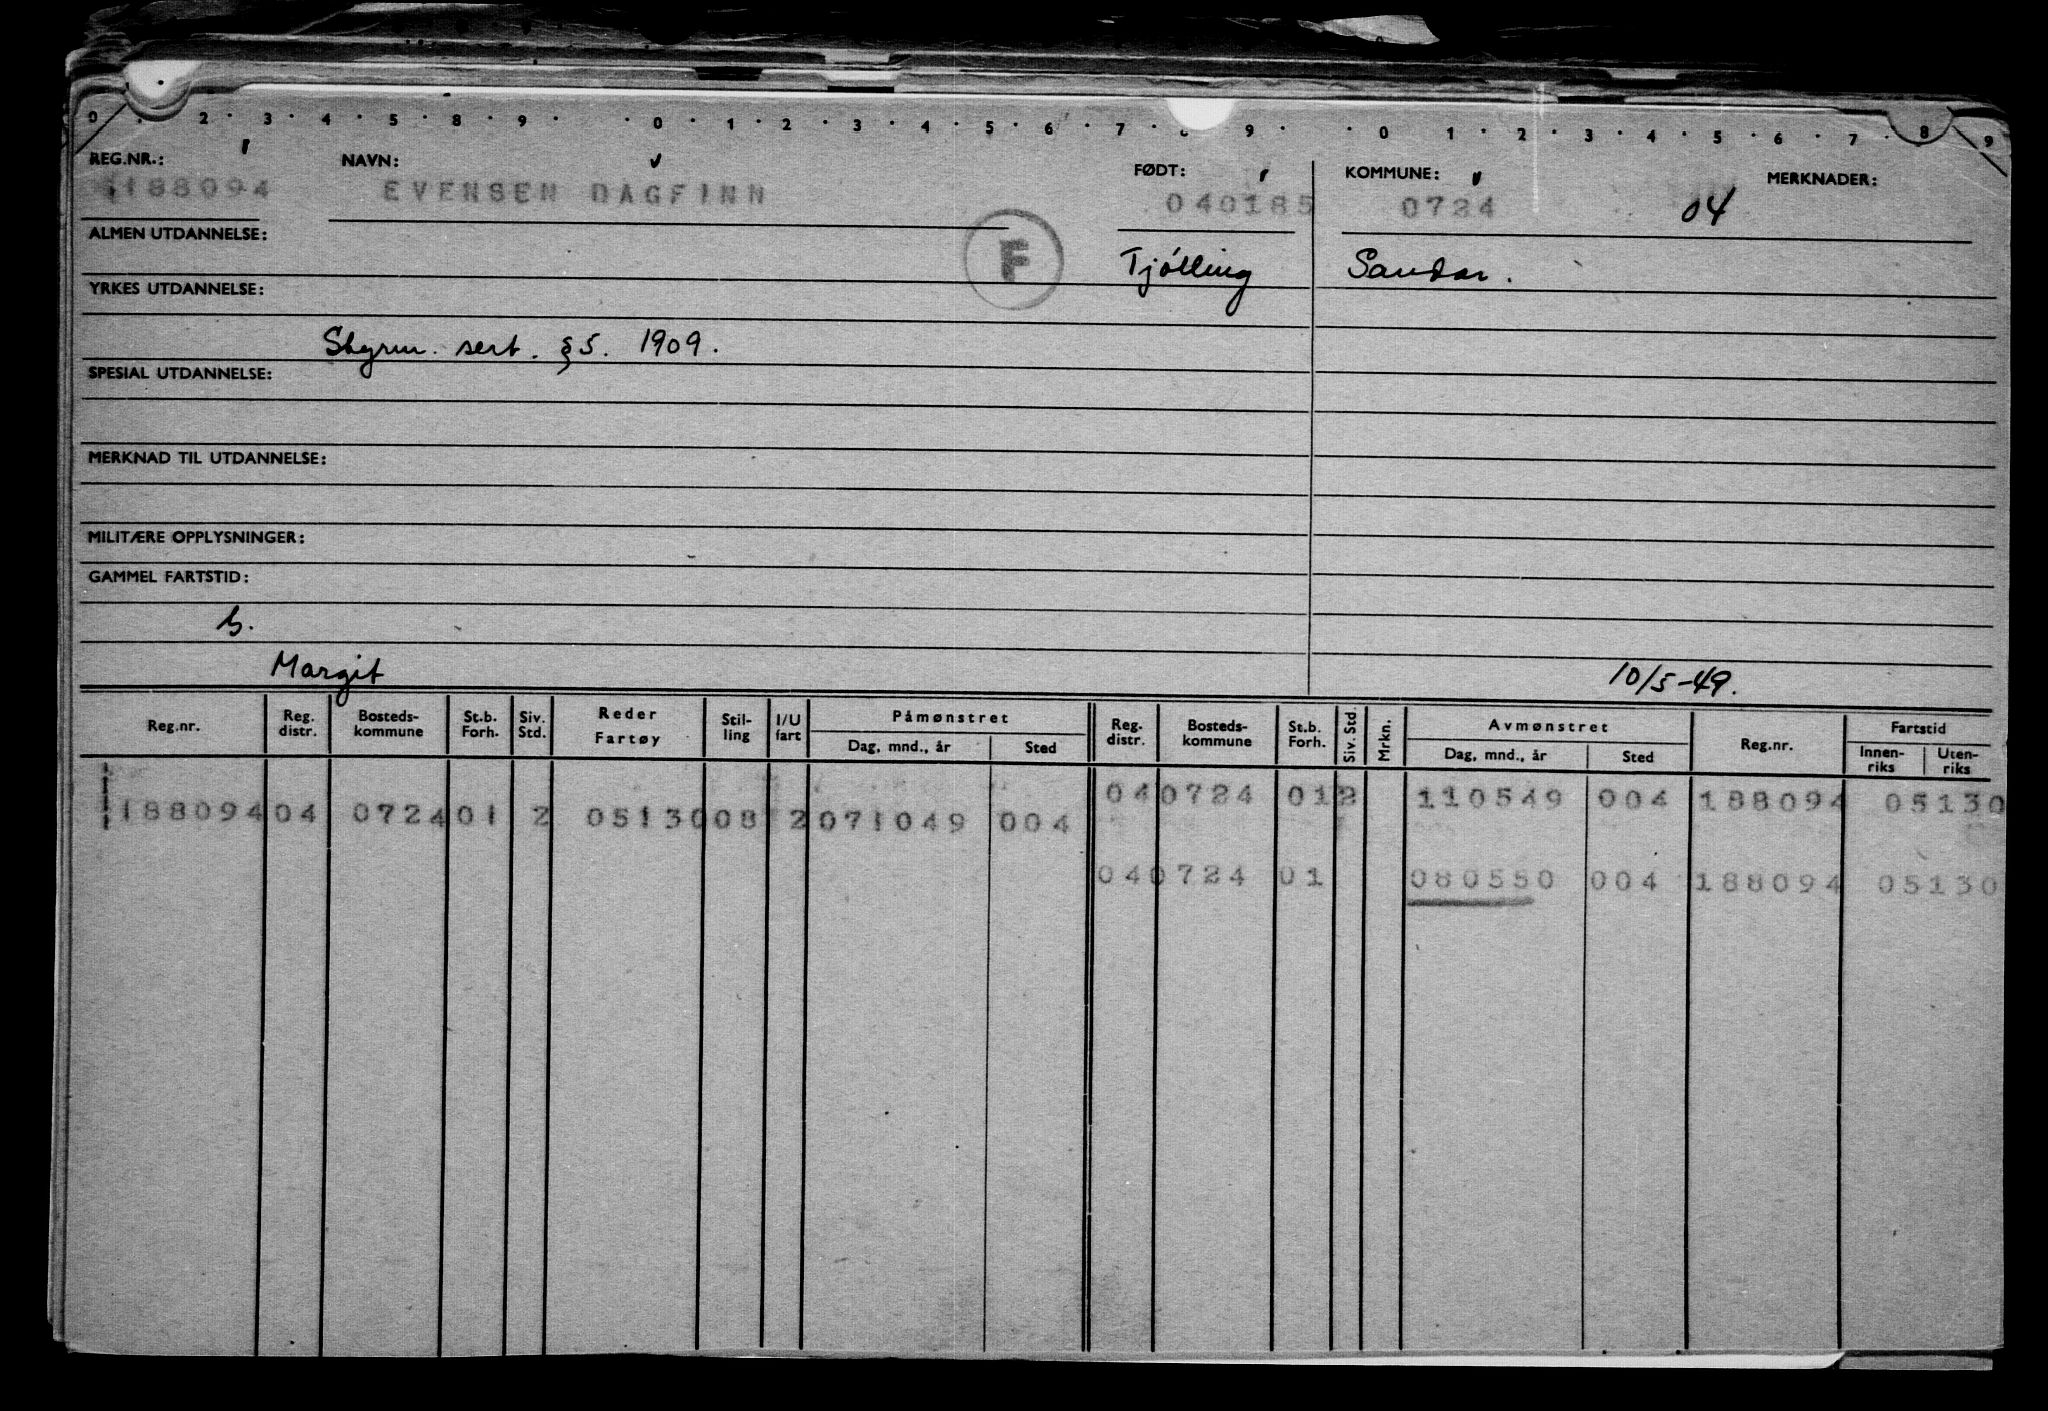 0 . 2 . 3 . 4 . 5 . 8 . 9 . . 0 . 1 . 2 . 3 . 4 . 5 . 6 . 7 . 8 9 . . 0 1 . 2 . 3 . 4 . 5 . 6 . 7 . 8 9
REG.NR.: NAVN: FØDT: KOMMUNE: MERKNADER:
188094 EVENSEN DAGFINN 040185 0724 04
ALMEN UTDANNELSE: F Tjölling Sandar.
YRKES UTDANNELSE:
Styrm. sert. §5. 1909.
SPESIAL UTDANNELSE:
MERKNAD TIL UTDANNELSE:
MILITÆRE OPPLYSNINGER:
GAMMEL FARTSTID:
Margit 10/5-49.
Reg.nr. Reg. distr. Bosteds-kommune St.b. Forh. Siv. Std. Reder Fartøy Stil-ling I/U fart Påmønstret Dag, mnd., år Sted Reg. distr. Bosteds-kommune St.b. Forh. Siv. Std. Mrkn. Avmønstret Dag, mnd., år Sted Reg.nr. Fartstid Innen-riks Uten-riks
04 0724 01 2 110549 004 188094 05130
188094 04 0724 01 2 05130 08 2 071049 004
04 0724 01 080550 004 188094 05130